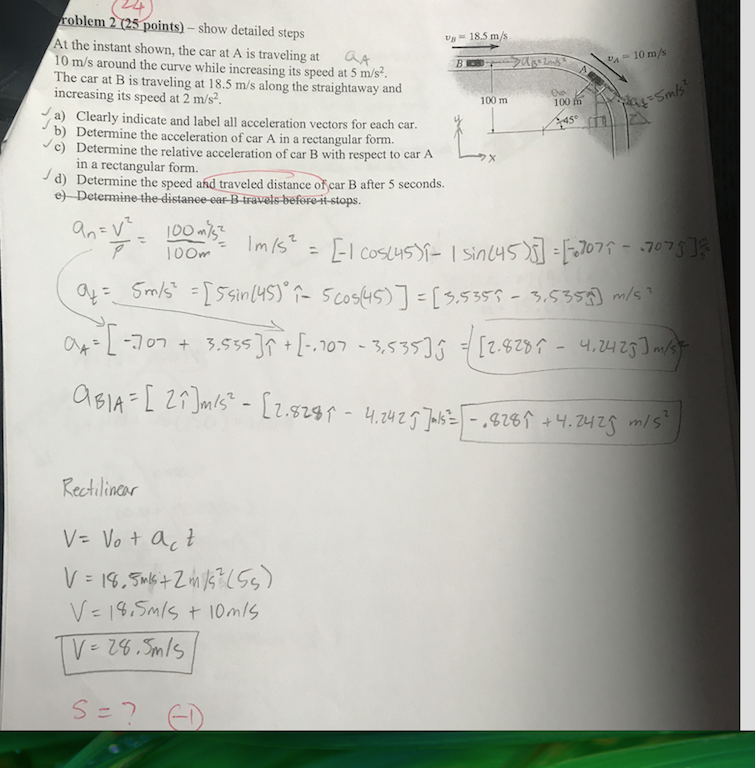 24
roblem 2 (25 points) – show detailed steps
At the instant shown, the car at A is traveling at
10 m/s around the curve while increasing its speed at 5 m/s².
The car at B is traveling at 18.5 m/s along the straightaway and
increasing its speed at 2 m/s².
a) Clearly indicate and label all acceleration vectors for each car.
b) Determine the acceleration of car A in a rectangular form.
c) Determine the relative acceleration of car B with respect to car A
in a rectangular form.
d) Determine the speed and traveled distance of car B after 5 seconds.
e) Determine the distance car B travels before it stops.
a_A
v_B = 18.5 m/s
v_A = 10 m/s
B
a_B = 2m/s²
A
a_n
a_t = 5m/s²
100 m
100 m
45°
y
x
a_n = V²/ρ = 100 m²/s² / 100m = 1m/s² = [-1 cos(45)î - 1 sin(45)ĵ] = [-.707î - .707ĵ]
a_t = 5m/s² = [5sin(45)° î - 5cos(45)] = [3.535î - 3.535ĵ] m/s²
a_A = [-.707 + 3.535]î + [-.707 - 3.535]ĵ = [2.828î - 4.242ĵ] m/s²
a_B/A = [2î]m/s² - [2.828î - 4.242ĵ]m/s² = -.828î + 4.242ĵ m/s²
Rectilinear
V = V₀ + a_c t
V = 18.5m/s + 2m/s²(5s)
V = 18.5m/s + 10m/s
V = 28.5m/s
S = ? (-1)